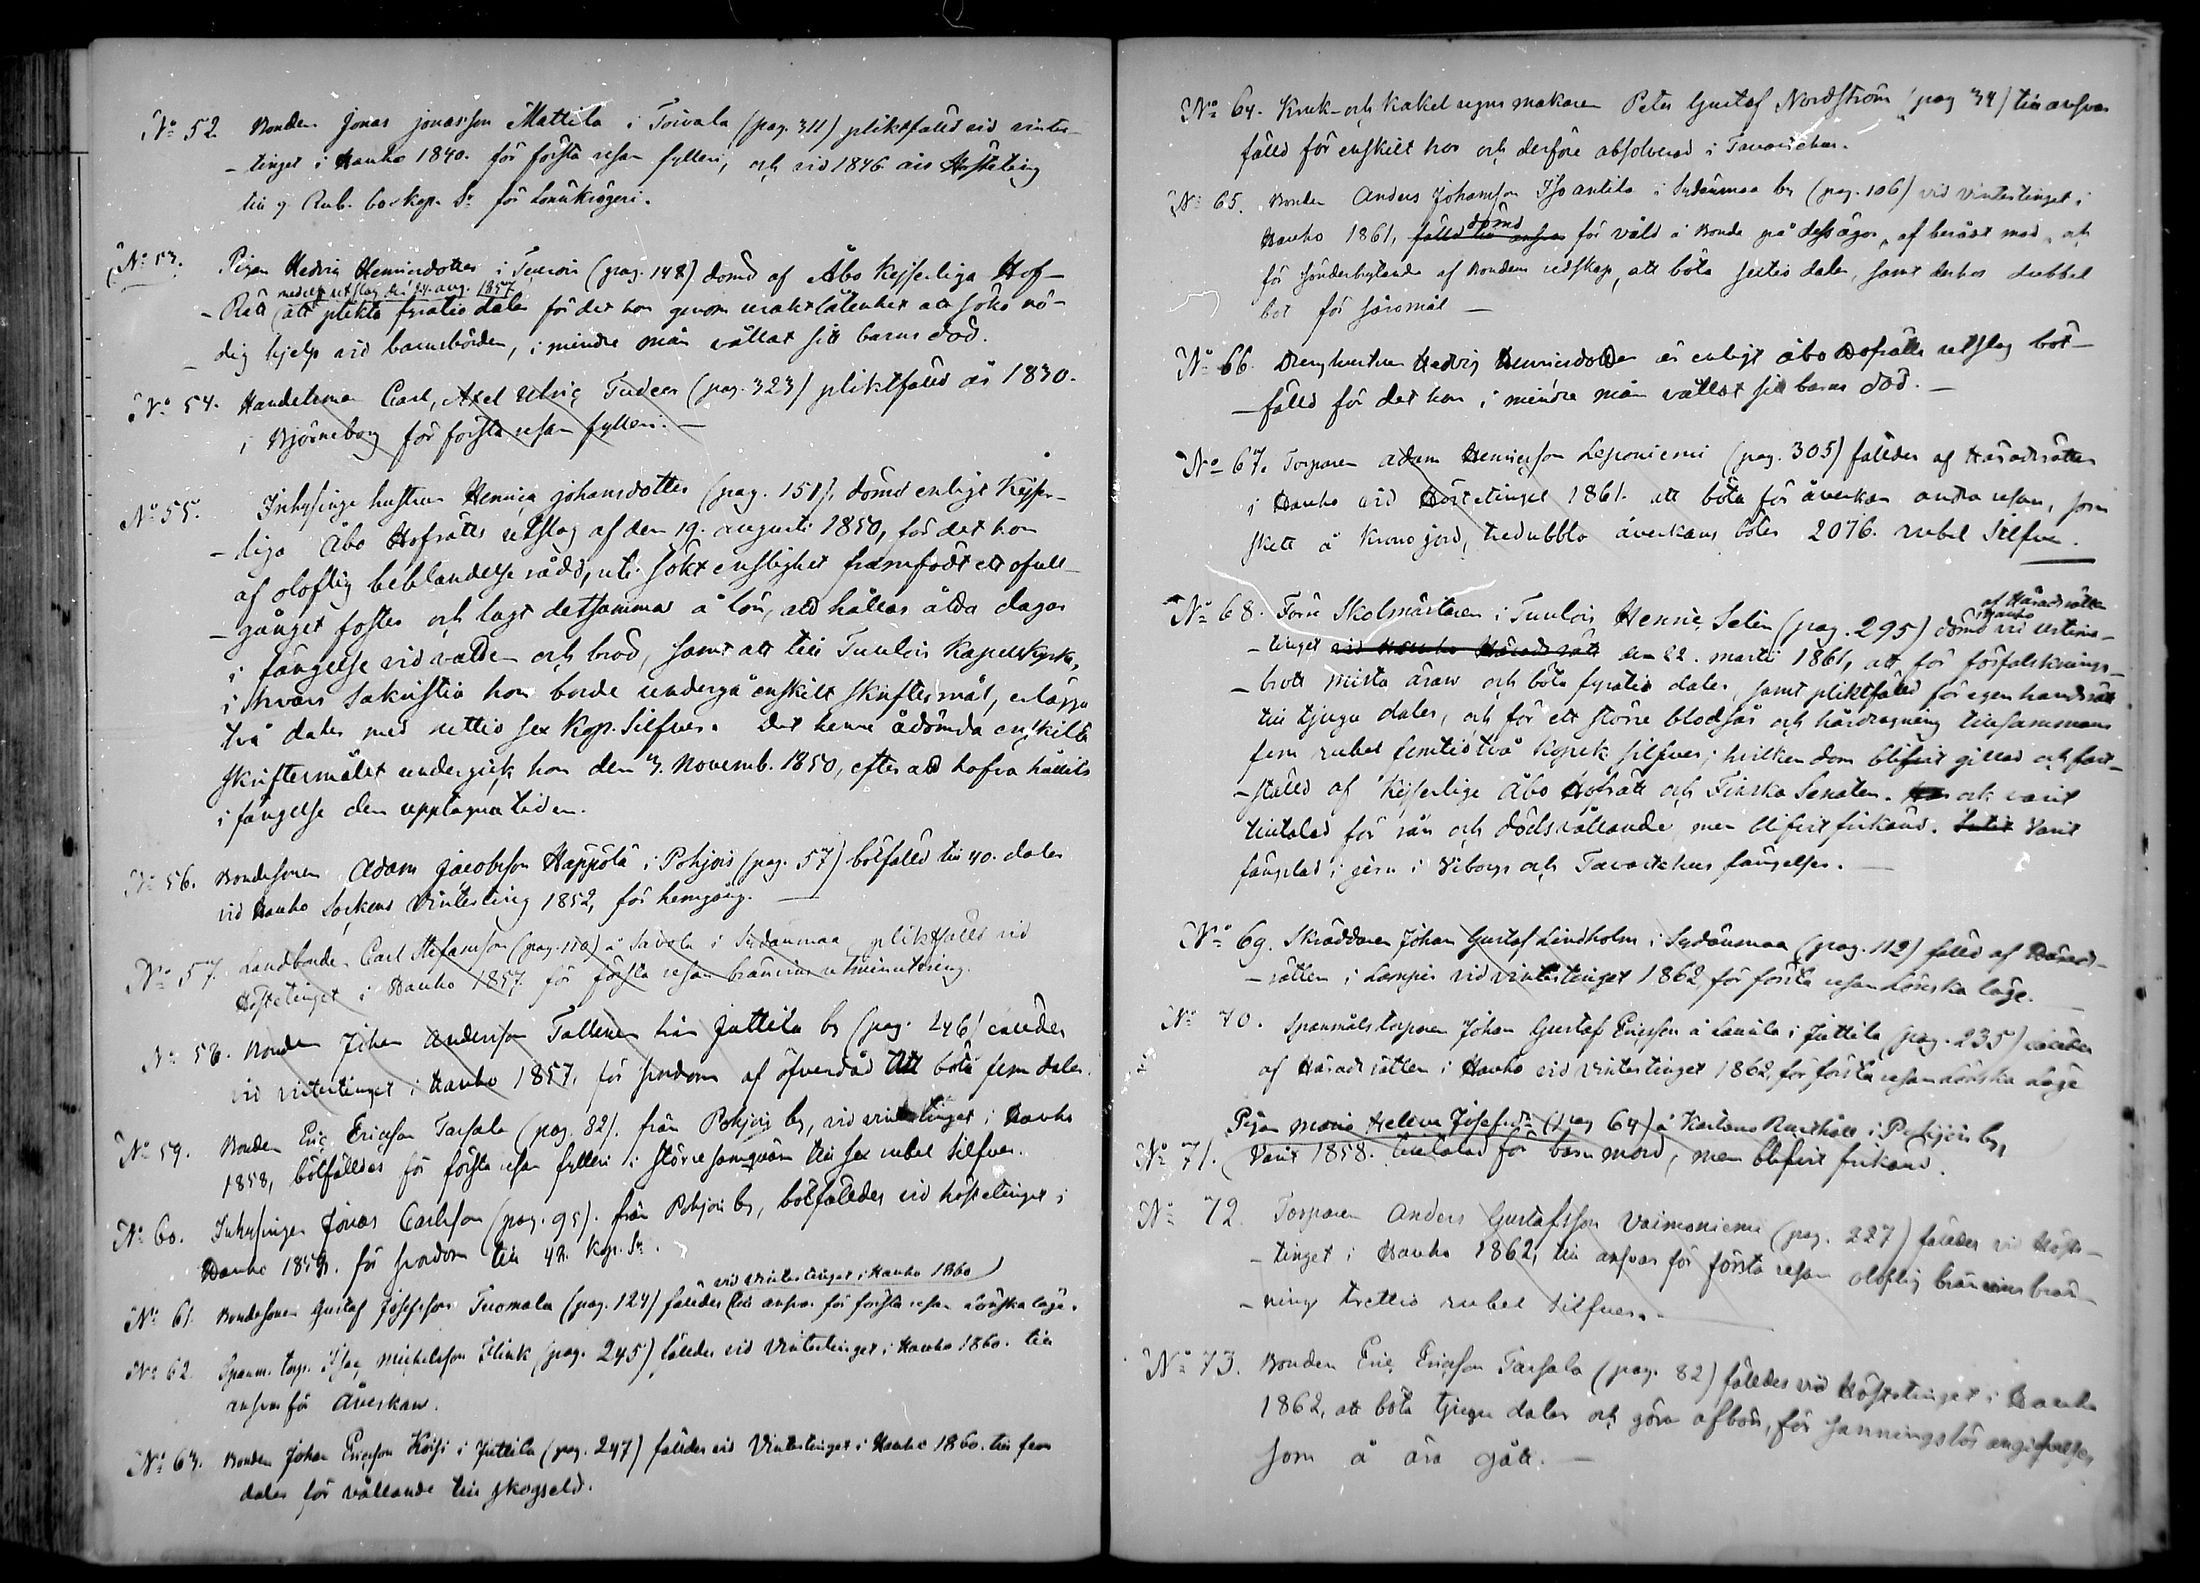 No 52. Bonden Jonas Jonasson Mattila i Toivala (pag. 311) pliktfälld vid vinter-
-tinget i Hauho 1840. för första resan fylleri, och vid 1846 års Hösteting
till 9. Rub. 60 kop. Sr för Lönnkrögeri.
No 53. Pigan Hedvig Henricsdotter i Tuulois (pag. 148) dömd af Åbo Kejserliga Hof-
medelst utslag den 24. aug. 1857
-Rätt att plikta fyratio daler för det hon genom uraktlåtenhet att söka nö-
-dig hjelp vid barnsbörden, i mindre mån vållat sitt barns död.
No 54. Handelsman Carl, Axel Ulric Tudeer (pag. 323) pliktfälld år 1830.
i Björneborg för första resan fylleri. —
No 55. Inhysinge hustrun Henrica Johansdotter (pag. 151), dömd enligt Kejser-
-liga Åbo Hofrätts utslag af den 19. augusti 1850, för det hon
af oloflig beblandelse rådd, uti sökt enslighet framfödt ett ofull-
-gånget foster och lagt detsamma å lön, att hållas åtta dagar
i fängelse vid vatten och bröd, samt att till Tuulois Kapellkyrka,
i hvars Sakristia hon borde undergå enskilt skriftermål, erlägga
två daler med nittio sex Kop. Silfver. Det henne ådömda enskilta
skriftermålet undergick hon den 3. Novemb. 1850, efter att hafva hållits
i fängelse den upptagna tiden.
No 56. Bondesonen Adam Jacobsson Häppölä i Pohjois (pag. 57) bötfälld till 40. daler
vid Hauho Sockens Vinterting 1852, för hemgång. —
No 57. Landbonde Carl Stefansson (pag. 110) å Savola i Sydänmaa pliktfälld vid
Höstetinget i Hauho 1857 för första resan bränvins utminutering.
No 58. Bonden Johan Andersson Tallenen från Juttila by (pag. 246) fälldes
vid vintertinget i Hauho 1857, för svordom af öfverdåd att böta fem daler.
No 59. Bonden Eric Ericsson Tarsala (pag. 82). från Pohjois by, vid vintertinget i Hauho
1858, bötfälldes för första resan fylleri i större samqväm till sex rubel silfver.
No 60. Inhysingen Jonas Carlsson (pag. 95). från Pohjois by, bötfälldes vid höstetinget i
Hauho 1859. för svordom till 48. Kop. Sr.
vid Vintertinget i Hauho 1860
No 61. Bondesonen Gustaf Josefsson Tuomala (pag. 124) fälldes till ansvar för första resan Lönska läge.
No 62. Spanm. torp. Isac Michelsson Flink (pag. 245) fälldes vid Vintertinget i Hauho 1860. till
ansvar för Åverkan.
No 63. Bonden Johan Ericsson Koisi i Juttila (pag. 247) fälldes vid Vintertinget i Hauho 1860. till fem
daler för vållande till skogseld.
No 64. Kruk- och Kakel ugns makaren Peter Gustaf Nordström (pag 34) till ansvar
fälld för enskilt hor och derföre absolverad i Tavastehus.
No 65. Bonden Anders Johansson Iso antila i Sydänmaa by (pag. 106) vid Vintertinget i
dömd
Hauho 1861, fälld till ansvar för våld å Bonde på dess ägor, af beråd mod, och
för sönderbrytande af Bondens redskap, att böta sextio daler, samt derhos dubbel
bot för såramål —
No 66. Drenghustrun Hedvig Henricsdotter är enligt Åbo Hofrätts utslag böt-
-fälld för det hon i mindre mån vållat sitt barns död. —
No 67. Torparen Adam Henricsson Leponiemi (pag. 305) fälldes af Häradsrätten
i Hauho vid Höstetinget 1861. att böta för åverkan andra resan, som
skett å Krono jord, tredubbla åverkans böter 20 76. rubel Silfver.
af Häradsrätten
i Hauho
No 68. Förre Skolmästaren i Tuulois Henric Selin (pag. 295) dömd vid urtima-
-tinget vid Hauho Häradsrätt den 22. martii 1861, att för förfalsknings-
-brott mista äran och böta fyratio daler, samt pliktfälld för egenhandsrätt
till tjugu daler, och för ett större blodsår och hårdragning tillsammans
fem rubel femtiotvå kopek silfver; hvilken dom blifvit gillad och fast-
-ställd af Kejserliga Åbo Hofrätt och Finska Senaten. och varit
tilltalad för rån och dödsvållande men blifvit frikänd. Varit
fängslad i jern i Viborgs och Tavastehus fängelser. —
No 69. Skräddaren Johan Gustaf Lindholm i Sydänmaa (pag. 112) fälld af Härads-
-rätten i Lampis vid vintertinget 1862, för första resan Lönska läge.
No 70. Spanmålstorparen Johan Gustaf Ericsson å Laurila i Juttila (pag. 235) fälldes
af Häradsrätten i Hauho vid Vintertinget 1862, för första resan Lönska Läge
Pigan Maria Helena Josefsdr (pag 64) å Karlano Rusthåll i Pohjois by,
No 71. Varit 1858. tilltalad för barnmord, men blifvit frikänd.
No 72. Torparen Anders Gustafsson Vaimoniemi (pag. 227) fälldes vid Höste-
-tinget i Hauho 1862, till ansvar för första resan oloflig bränvinsbrän-
-ning trettio rubel silfver. —
No 73. Bonden Eric Ericsson Tarsala (pag. 82) fälldes vid Höstetinget i Hauho
1862, att böta tjugu daler och göra afbön, för sanningslös angifvelse,
som å ära gått. —